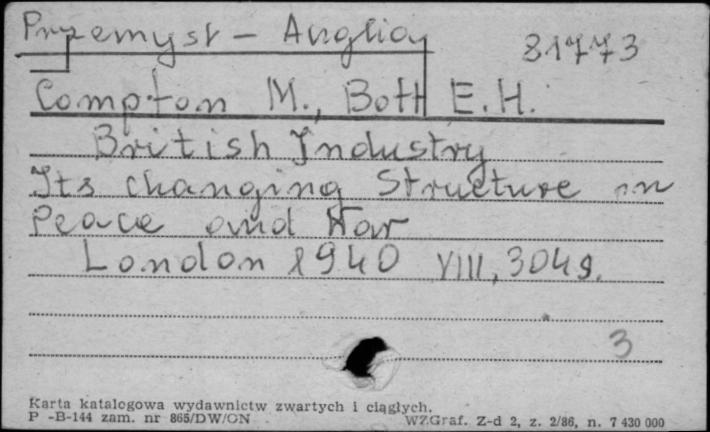 Przemysł - Anglia
81773
Compton M., Bott E.H.
British Industry
Its changing Structure in
Peace and War
London 1940 VIII, 304s.
3
Karta katalogowa wydawnictw zwartych i ciągłych.
P -B-144 zam. nr 865/DW/ON
WZGraf. Z-d 2, z. 2/86, n. 7 430 000